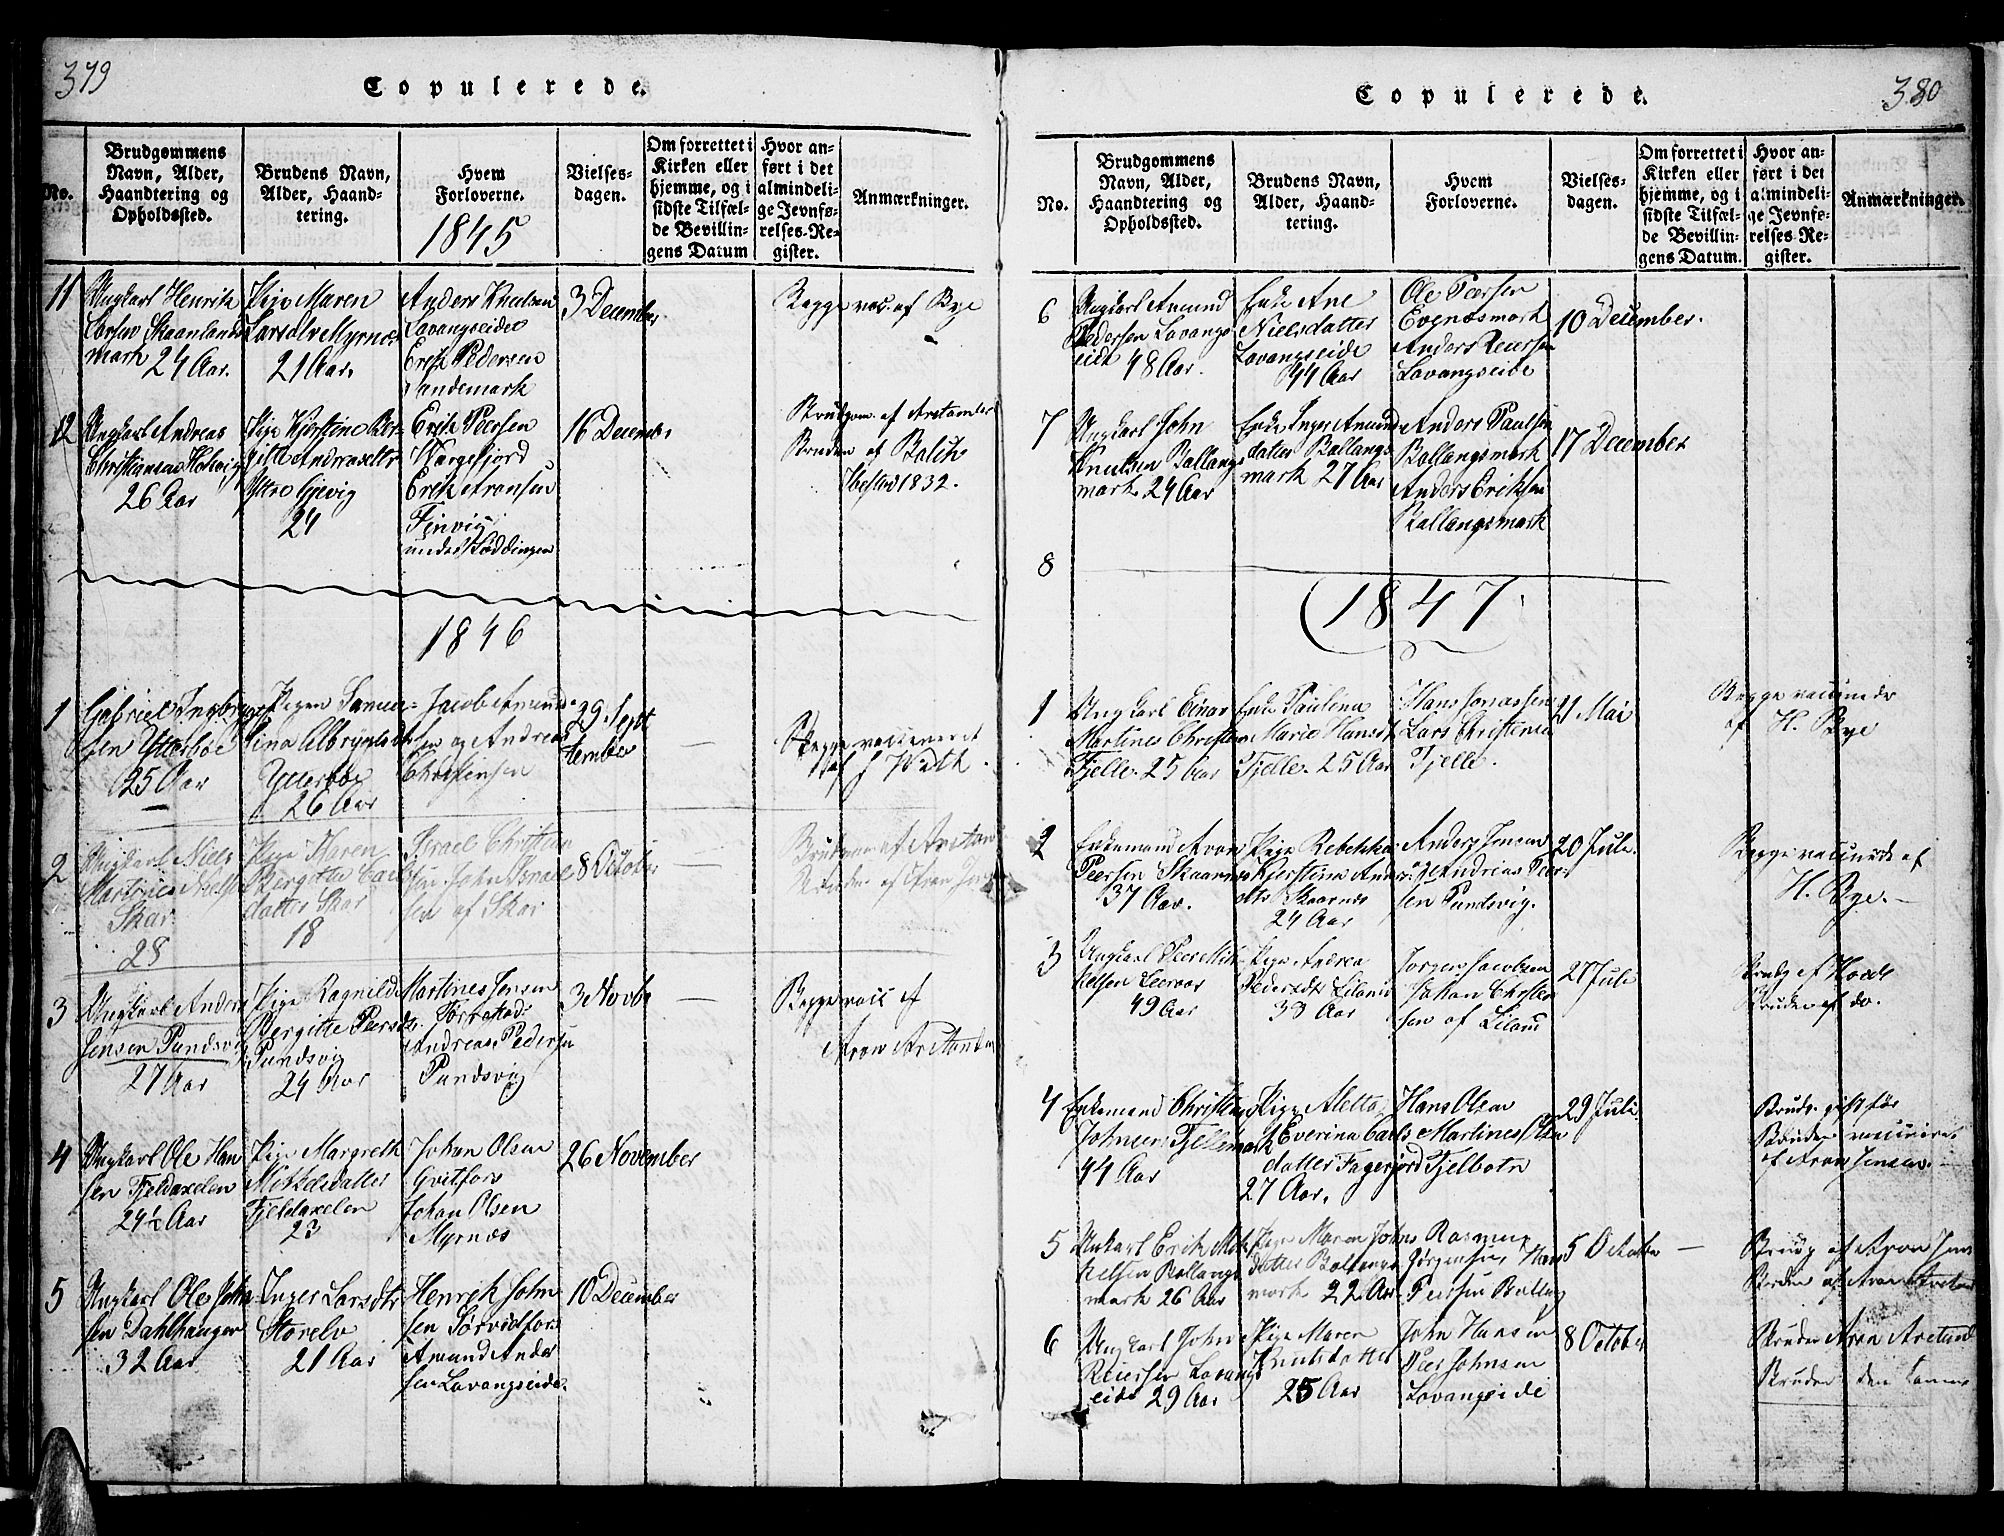 379
Copulerede.
No.
Brudgommens Navn, Alder, Haandtering og Opholdssted.
Brudens Navn, Alder, Haandtering.
Hvem Forloverne.
Vielsesdagen.
Om forrettet i Kirken eller hjemme, og i sidste Tilfælde Bevillingens Datum
Hvor anført i det almindelige Jevnførelses-Register.
Anmærkninger.
1845
11
Ungkarl Henrik
Larsen Skaanlands
mark 24 Aar.
Pige Maren
Larsdtr Myrnæs
21 Aar.
Anders Knudsen
Lavangseidet
Erik Pedersen
Sandemark
3 December
Begge vac. af Bye
12
Ungkarl Andreas
Christensen
26 Aar
Pige Kjerstine Ber-
gitte
Yttre Gjevig
24
Erik Peersen
Wargefjord
Erik Aronsen
Finvig
under Løddingen
16 December
Brudgom. af
Bruden af Balch
Ibestad 1832.
1846
1
Gabriel Ingbrigt
sen Ytterboe
25 Aar
Pigen
Ytterboe
26 Aar
Jacob Amund
sen og Andreas
Christensen
29 Sept
tember
—
Begge vaccineret
af J
2
Ungkarl Niels
Martines
Skar
28
Pige Maren
Bergitte Carls
datter Skar
18
Israel Christian
sen John Israel
sen af Skar
8 October
—
Brudgom af
Bruden af Aron
3
Ungkarl Anders
Jensen Pundsvig
27 Aar
Pige Ragnild
Bergitte Peersdtr
Pundsvig
24 Aar
Martines Jensen
Andreas Pedersen
Pundsvig
3 Novbr
—
Begge vacc af
Aron
4
Ungkarl Ole Han
sen Fjeldaxelen
24½ Aar
Pige Margreth
Mikkelsdatter
Fjeldaxelen
23
Johan Olsen
Gvitfors
Johan Olsen
Myrnæs
26 November
5
Ungkarl Ole John
sen Dahlhaugen
32 Aar
Inger Larsdtr
Storelv
21 Aar
Henrik John
sen Sørvidfors
Amund Ander
sen Lavangseide.
10 December
380
Copulerede.
No.
Brudgommens Navn, Alder, Haandtering og Opholdssted.
Brudens Navn, Alder, Haandtering.
Hvem Forloverne.
Vielsesdagen.
Om forrettet i Kirken eller hjemme, og i sidste Tilfælde Bevillingens Datum.
Hvor anført i det almindelige Jevnførelses-Register.
Anmærkninger.
6
Ungkarl Amund
Pedersen Lavangs
eidt 48 Aar.
Enke Ane
Nielsdatter
Lavangseide
44 Aar
Ole Peersen
Evenæsmark
Anders Reiersen
Lavangseide
10 December.
7
Ungkarl John
Knutsen Ballangs
mark 24 Aar
Enke Inger Amund
datter Ballangs
mark 27 Aar
Anders Paulsen
Ballangsmark
Anders Eriksen
Ballangsmark
17 December
8
1847
1
Ungkarl Einar
Martines Christensen
Fjelle. 25 Aar
Enke Paulina
Marie Hansdtr
Fjelle. 25 Aar
Hans Jonassen
Lars Christensen
Fjelle.
21 Mai
Begge vaccineder
af H. Bye
2
Enkemand Aron
Peersen Skaarnes
37 Aar.
Pige Rebekka
Kjerstina Anders
dtr Skaarnæs
24 Aar
Anders Jensen
og Andreas Peer
sen Pundsvig.
20 Juli.
Begge vaccinede af
H. Bye. —
3
Ungkarl Peer Mik
kelsen
49 Aar
Pige Andrea
Pedersdtr Liland
33 Aar
Jørgen Jacobsen
Johan Christen
sen af Liland
27 Juli
Brudg af
Bruden af do.
4
Enkemand Christen
Johnsen Fjellmark
44 Aar
Pige Aletta
Everina Carls
datter Fagerjord
27 Aar.
Hans Olsen
Martines Olsen
Fjelbotn
29 Juli
Brudg. gift før
Bruden vaccineret
af Aron Jensen. —
5
Unkarl Erik Mik
kelsen Ballangs
mark 26 Aar
Pige Maren Johns
datter Ballangs
mark 22 Aar
Rasmus
Jørgensen Hans
Peersen Ballang
5 October
—
Brudg af Aron Jens
Bruden af Aron
6
Ungkarl John
Reiersen Lavangs
eide 29 Aar
Pige Maren
Knutsdatter
25 Aar
John Hansen
Peer Johnsen
Lavangseide
8 October
Bruden Aron
Bruden den samme